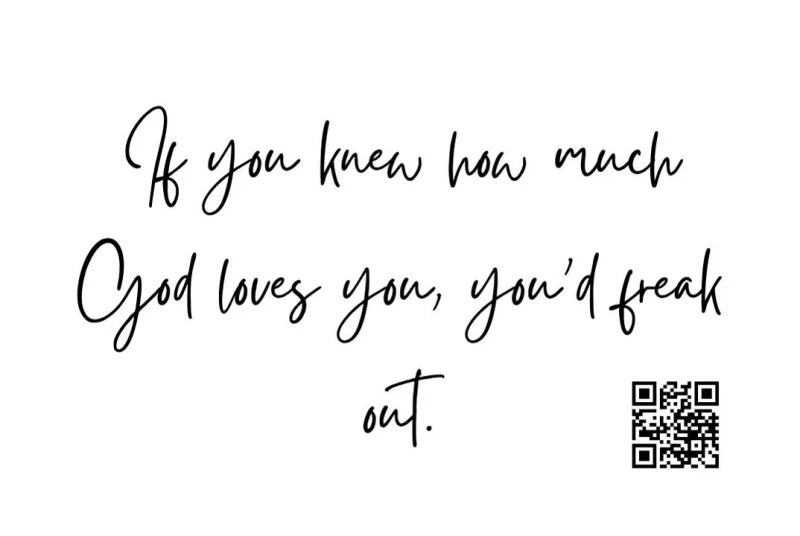 If you knew how much
God loves you, you'd freak
out.